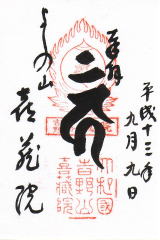 平成十三年
九月九日
奉拝
よしの山
喜蔵院
大和國
吉野山
喜蔵院